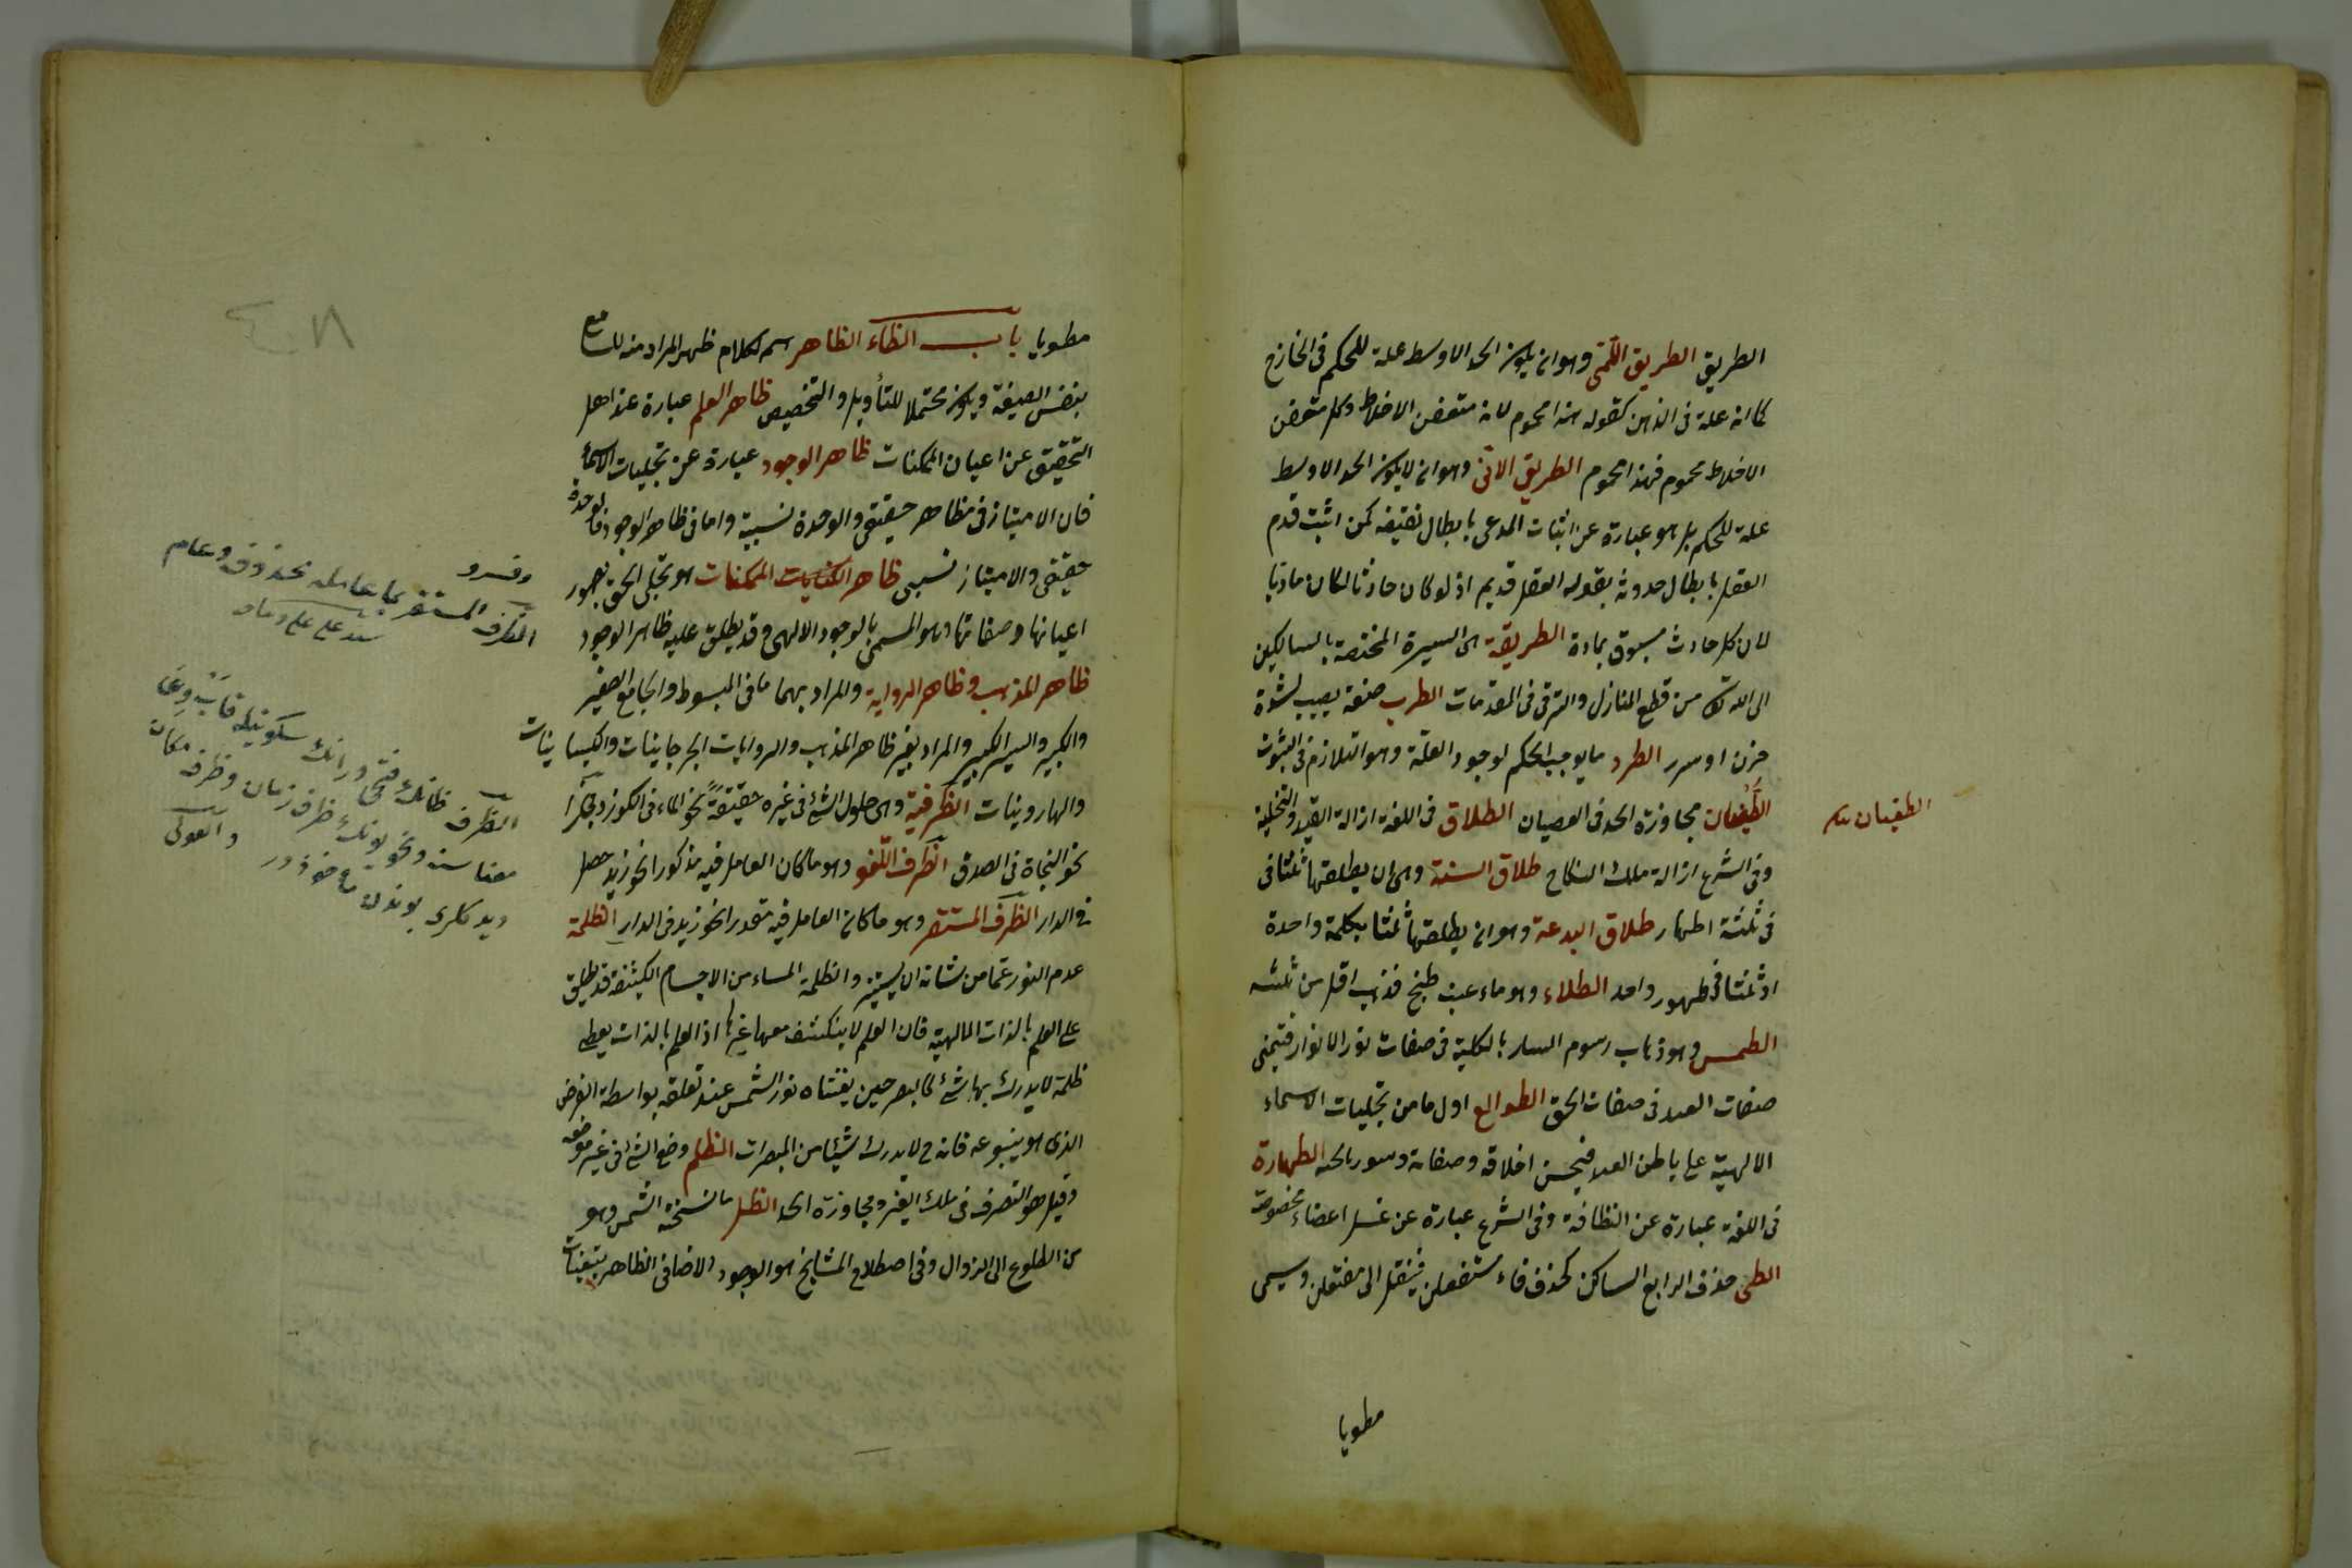 الطريق الطريق اللّمّى وهو ان يكون الحد الاوسط علة للحكم فى الخارج
كما انه علة فى الذهن كقوله هذا محموم لانه متعفن الاخلاط وكل متعفن
الاخلاط محموم فهذا محموم الطريق الانّى وهو ان لا يكون الحد الاوسط
علة للحكم بل هو عبارة عن اثبات المدعى بابطال نقيضه كمن اثبت قدم
العقل بابطال حدوثه بقوله العقل قديم اذ لو كان حادثا لكان ماديا
لان كل حادث مسبوق بمادة الطريقة هى السيرة المختصة بالسالكين
الى الله تعالى من قطع المنازل والترقى فى المقدمات الطرب خفة يصيب لشدة
حزن او سرور الطرد ما يوجب الحكم لوجود العلّة وهو التلازم فى الثبوت
الطغيان مجاوزة الحد فى العصيان الطلاق فى اللغة ازالة القيد والتخلية
وفى الشرع ازالة ملك النكاح طلاق السنة وهى ان يطلقها ثلثا فى
فى ثلثة اطهار طلاق البدعة وهو ان يطلقها ثلثا بكلمة واحدة
او ثلثا فى طهور واحد الطلاء وهو ماء عنب طبخ فذهب اقل من ثلثه
الطمس وهو ذهاب رسوم السيار بالكلية فى صفات نور الانوار فتفنى
صفات العبد فى صفات الحق الطوالع اول ما من تجليات الاسماء
الالهية على باطن العبد فيحسن اخلاقه وصفاته وسور باطنه الطهارة
فى اللغة عبارة عن النظافة وفى الشرع عبارة عن غسل اعضاء مخصوصة
الطى حذف الرابع الساكن كحذف فاء مستفعلن فينقل الى مفتعلن ويسمى
مطويا
الطغيان
مطويا باب الظاء الظاهر اسم لكلام ظهر المراد منه للسامع
بنفس الصيغة ويكون محتملا للتأويل والتخصيص ظاهر العلم عبارة عند اهل
التحقيق عن اعيان الممكنات ظاهر الوجود عبارة عن تجليات الاسماء
فان الامتياز فى مظاهر حقيقى والوحدة نسبية واما فى ظاهر الوجود فالوحدة
حقيقى والامتياز نسبى ظاهر الممكنات هو تجلى الحق بصور
اعيانها وصفاتها وهو المسمى بالوجود الالهى وقد يطلق عليه ظاهر الوجود
ظاهر المذهب وظاهر الرواية والمراد بهما ما فى المبسوط والجامع الصغير
والكبير والسير الكبير والمراد بغير ظاهر المذهب والروايات الجرجانيات والكيسانيات
والهارونيات الظرفية وهى حلول الشئ فى غيره حقيقةً نحو الماء فى الكوز ومجازًا
نحو النجاة فى الصدق الظرف اللّغو وهو ما كان العامل فيه مذكورا نحو زيد حصل
فى الدار الظرف المستقر وهو ما كان العامل فيه مقدرا نحو زيد فى الدار الظلمة
عدم النور عمّا من شانه ان يستنير والظلمة المساء من الاجسام الكثيفة قد يطلق
على العلم بالذات الالهية فان العلم لا ينكشف معها غيرها اذ العلم بالذات يعطى
ظلمة لا يدرك بها شئ كالبصر حين يغشاه نور الشمس عند تعلقه بواسطة القرص
الذى هو ينبوعه فانه ح لا يدرك شيئا من المبصرات الظلم وضع الشئ فى غير موضعه
وقيل هو التصرف فى ملك الغير ومجاوزة الحد الظل ما نسخته الشمس وهو
من الطلوع الى الزوال وفى اصطلاح المشايخ هو الوجود الاضافى الظاهر بتعينات
وفسرو
الظرف المستقر بما عامله محذوف وعام
الظرف ظانك فتحى ورانك سكونيله قاب وعا
معناسنه ونحويونك ظرف زمان وظرف مكان
ديدكلرى بوندن مأخوذدر